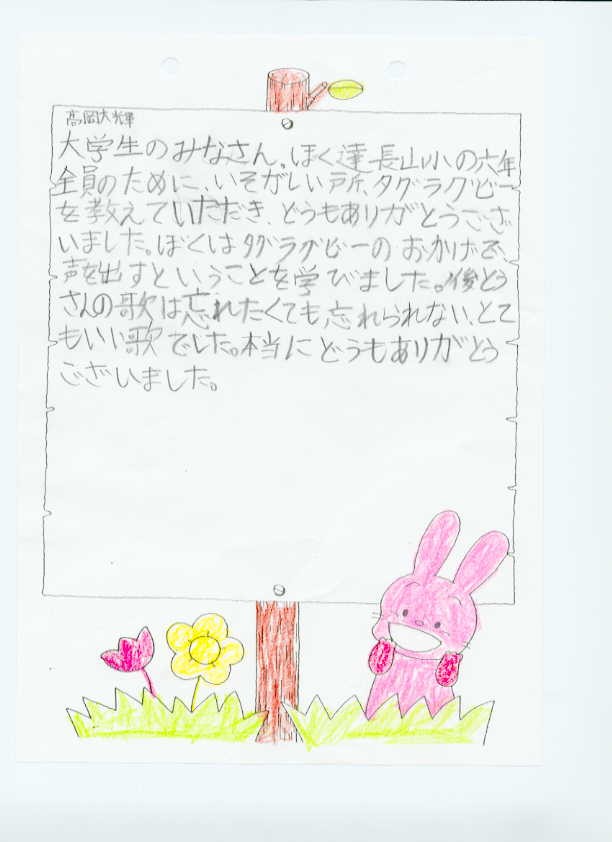 高岡大輝
大学生のみなさん。ぼく達長山小の六年
全員のために、いそがしい所、タグラグビー
を教えていただき、どうもありがとうござ
いました。ぼくはタグラグビーのおかげで、
声を出すということを学びました。後とう
さんの歌は忘れたくても忘れられない、とて
もいい歌でした。本当にどうもありがとう
ございました。